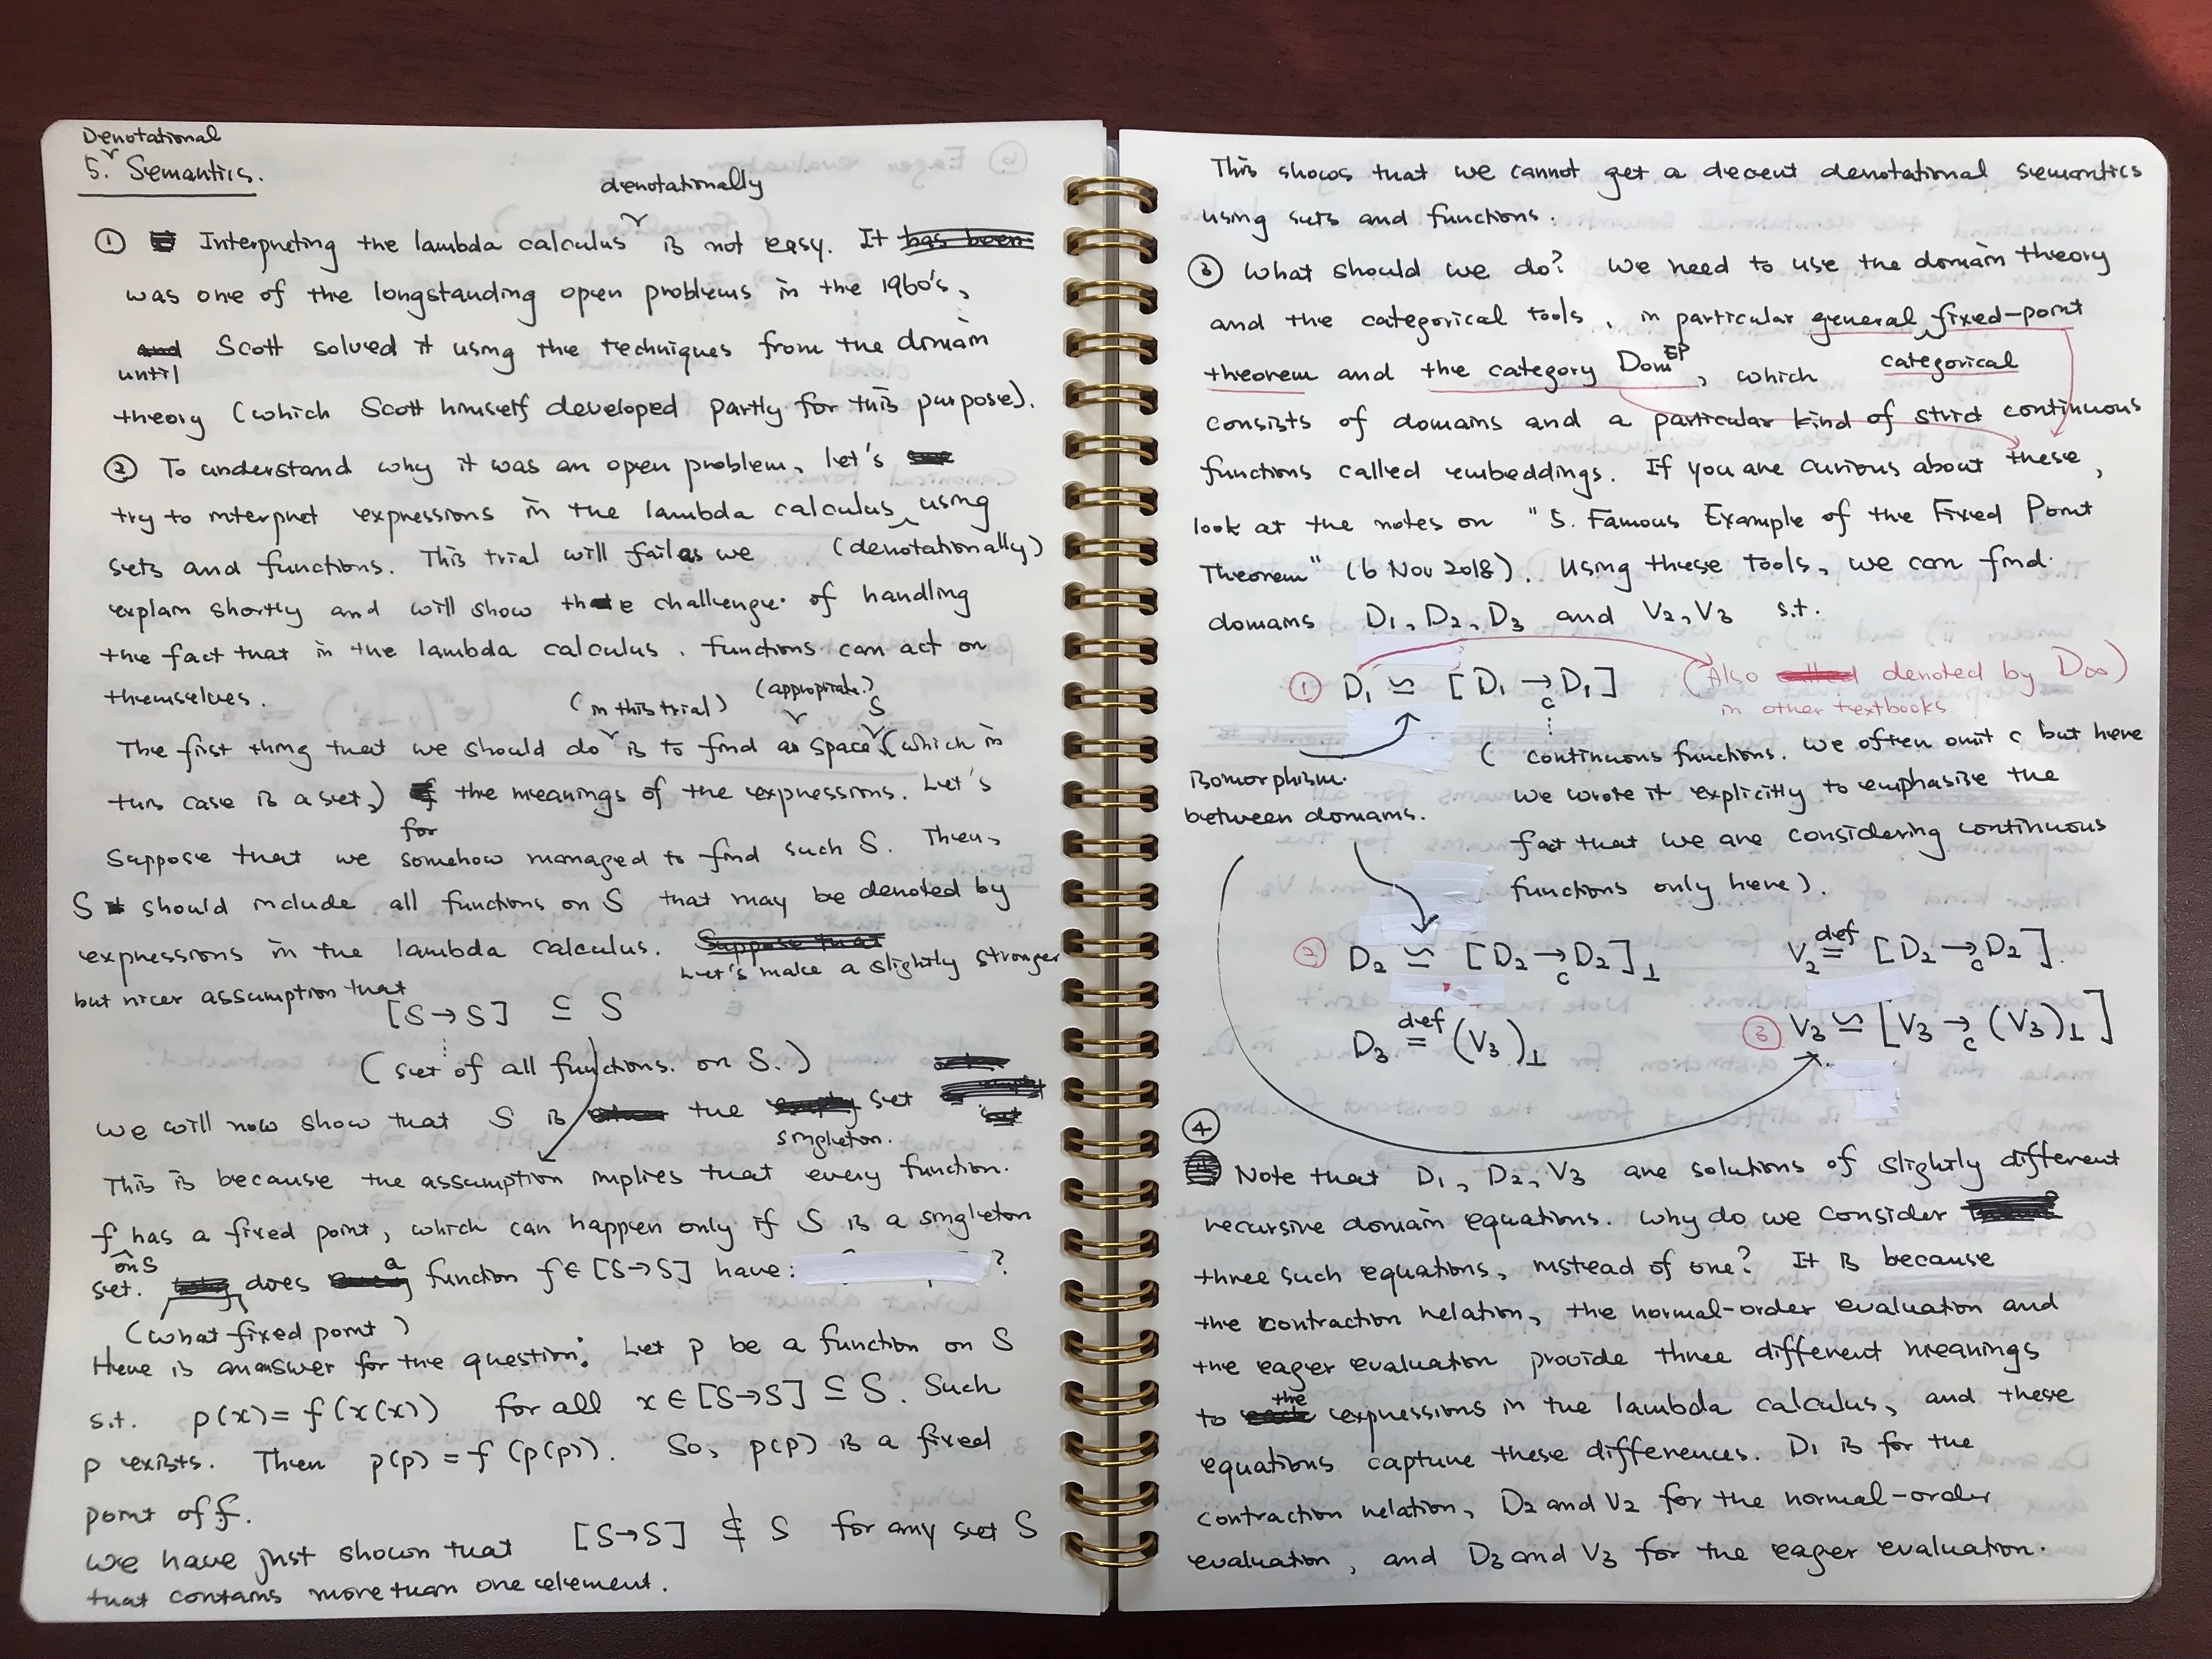 Denotational
5. Semantics.
denotationally
① Interpreting the lambda calculus is not easy. It has been
was one of the longstanding open problems in the 1960's,
and Scott solved it using the techniques from the domain
until
theory (which Scott himself developed partly for this purpose).
② To understand why it was an open problem, let's
try to interpret expressions in the lambda calculus using
sets and functions. This trial will fail as we (denotationally)
explain shortly and will show the challenge of handling
the fact that in the lambda calculus, functions can act on
themselves.
(in this trial) (appropriate) S
The first thing that we should do is to find a space (which in
this case is a set) the meanings of the expressions. Let's
for
Suppose that we somehow managed to find such S. Then,
S should include all functions on S that may be denoted by
expressions in the lambda calculus. Suppose that
Let's make a slightly stronger
but nicer assumption that
[S→S] ⊆ S
(set of all functions on S.)
We will now show that S is the empty set
singleton.
This is because the assumption implies that every function
f has a fixed point, which can happen only if S is a singleton
on S
set. does a function f∈[S→S] have ?
(what fixed point)
Here is an answer for the question: Let p be a function on S
s.t. p(x) = f(x(x)) for all x∈[S→S] ⊆ S. Such
p exists. Then p(p) = f(p(p)). So, p(p) is a fixed
point of f.
We have just shown that [S→S] ⊈ S for any set S
that contains more than one element.
This shows that we cannot get a decent denotational semantics
using sets and functions.
③ What should we do? We need to use the domain theory
and the categorical tools, in particular general fixed-point
categorical
theorem and the category Dom^EP, which
consists of domains and a particular kind of strict continuous
functions called embeddings. If you are curious about these,
look at the notes on "5. Famous Example of the Fixed Point
Theorem" (6 Nov 2018). Using these tools, we can find
domains D₁, D₂, D₃ and V₂, V₃ s.t.
① D₁ ≃ [D₁ →c D₁] (Also called denoted by D∞)
in other textbooks.
(continuous functions. We often omit c but here
isomorphism
we wrote it explicitly to emphasise the
between domains.
fact that we are considering continuous
functions only here).
② D₂ ≃ [D₂ →c D₂]⊥ V₂ def= [D₂ →c D₂].
D₃ def= (V₃)⊥ ③ V₃ ≃ [V₃ →c (V₃)⊥]
④
Note that D₁, D₂, V₃ are solutions of slightly different
recursive domain equations. Why do we consider
three such equations, instead of one? It is because
the contraction relation, the normal-order evaluation and
the eager evaluation provide three different meanings
the
to each expressions in the lambda calculus, and these
equations capture these differences. D₁ is for the
contraction relation, D₂ and V₂ for the normal-order
evaluation, and D₃ and V₃ for the eager evaluation.